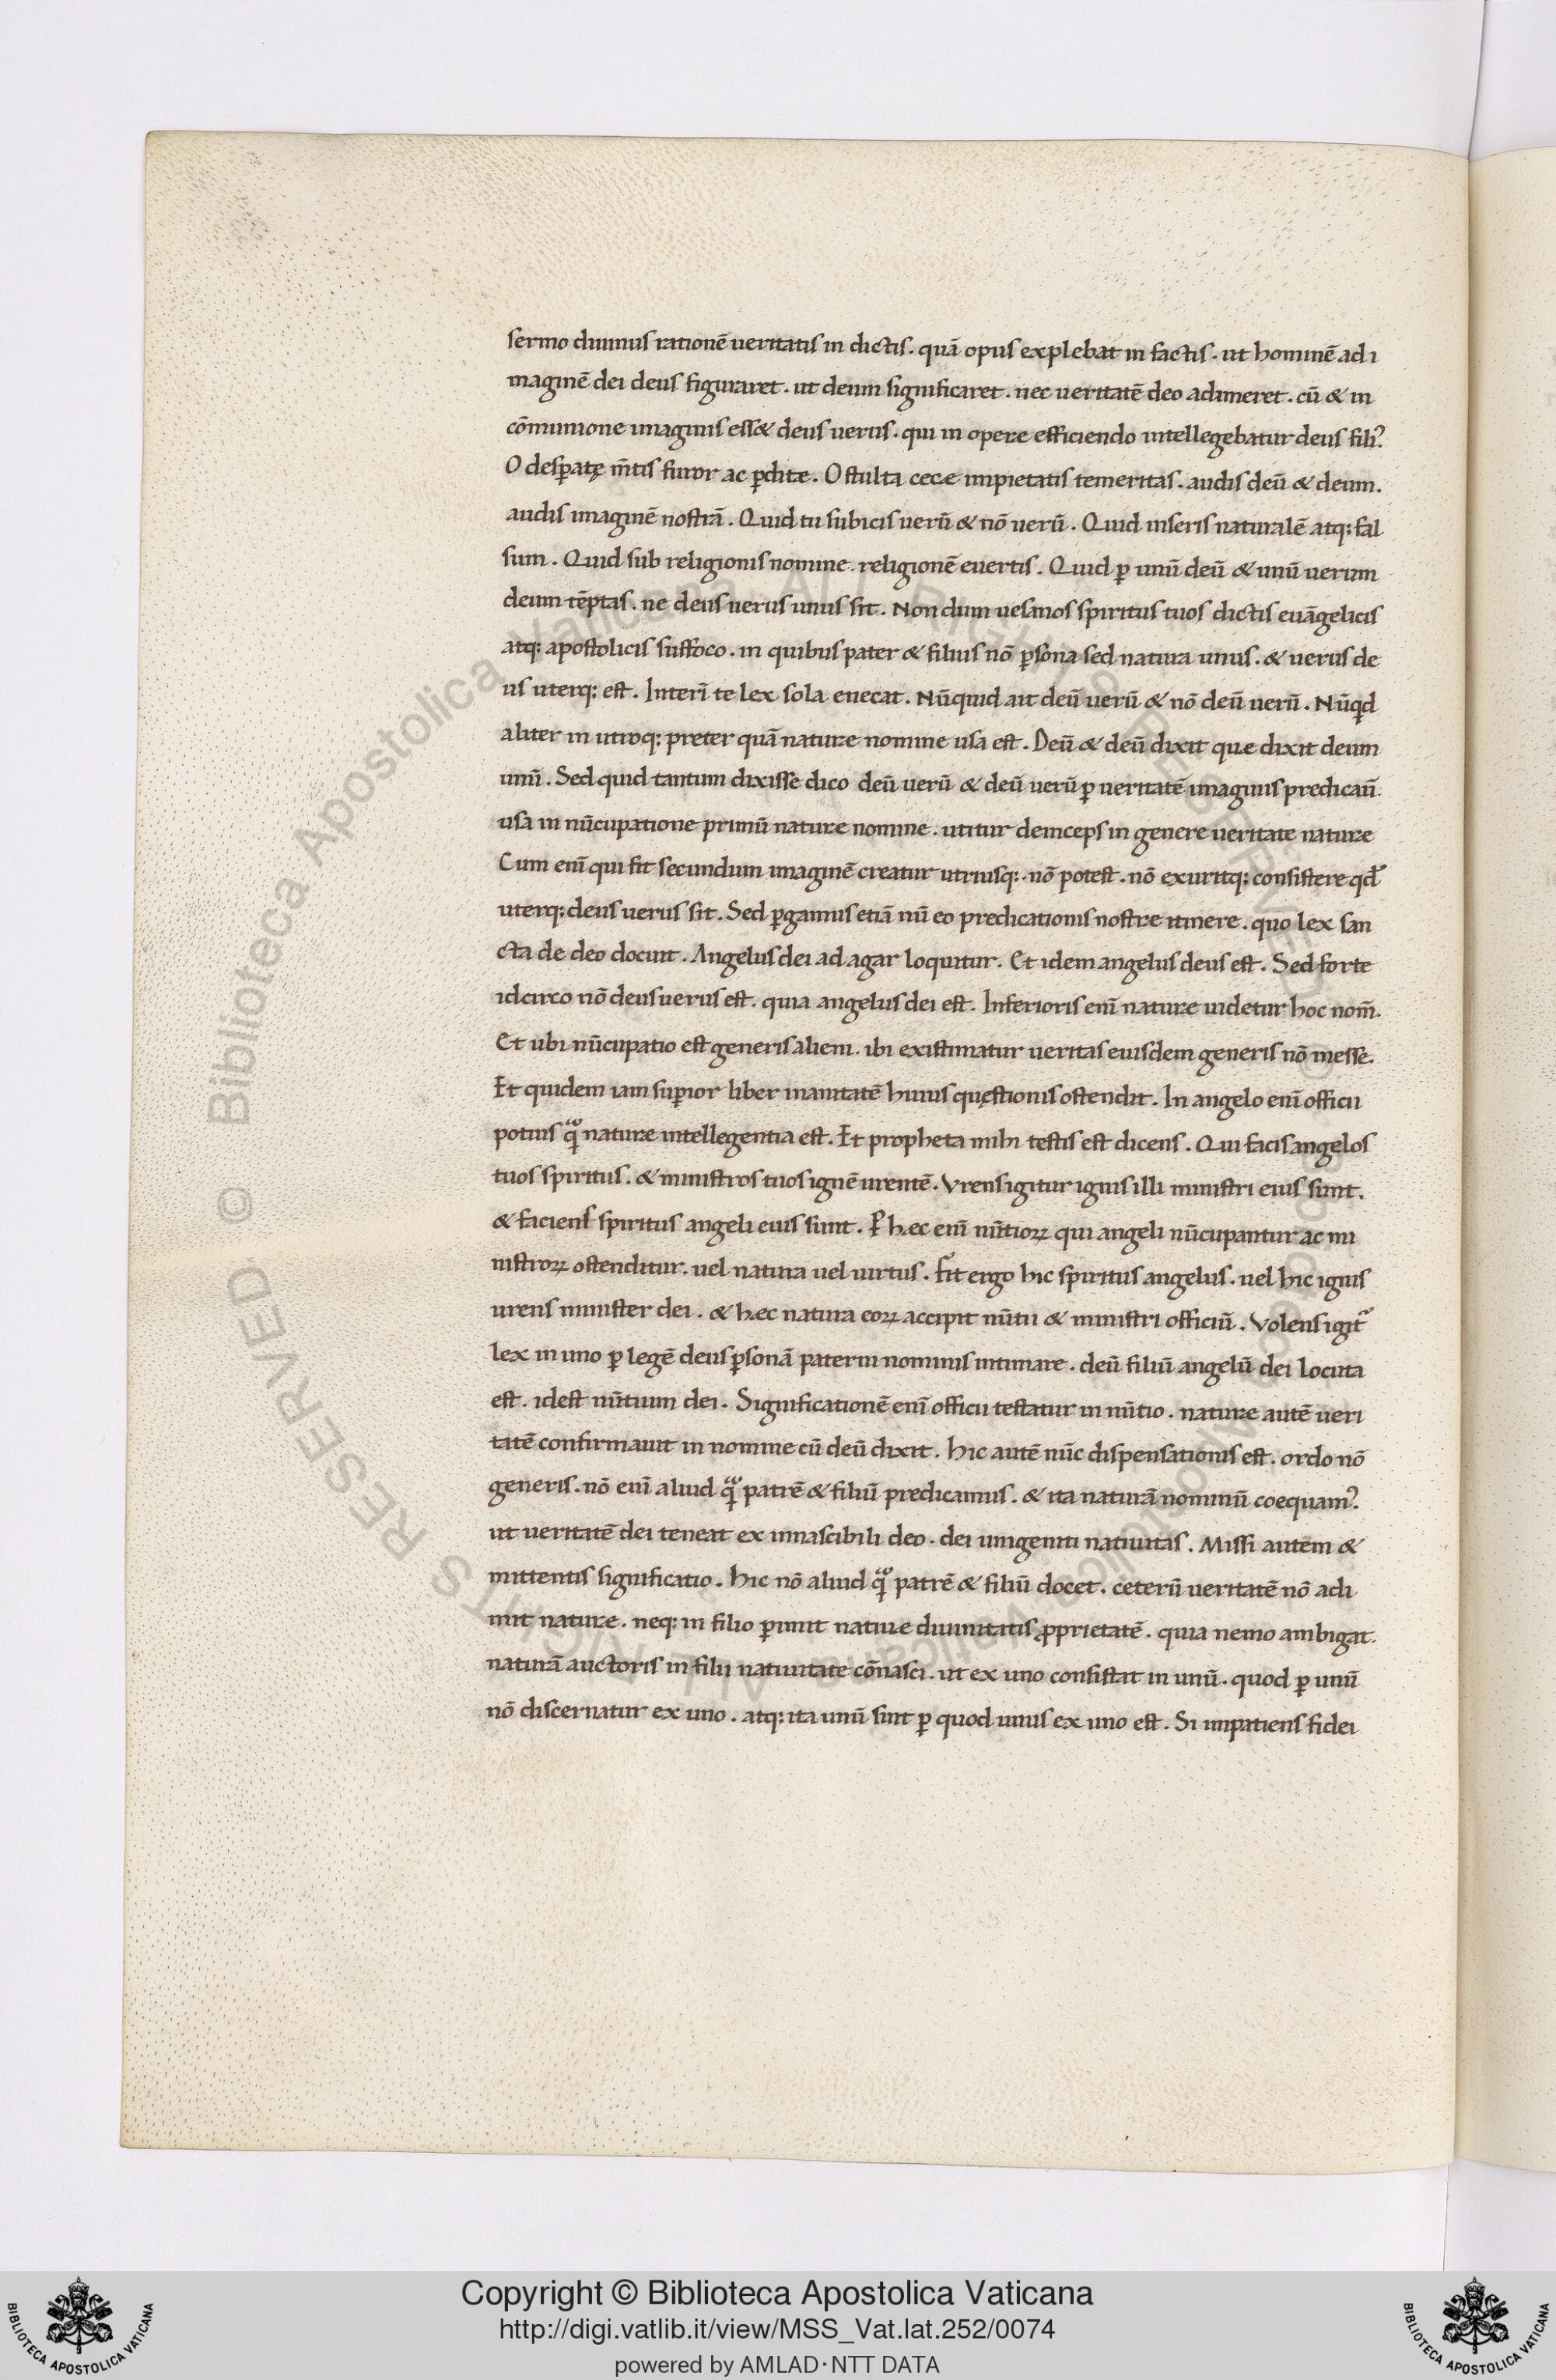 sermo diuinus rationē ueritatis in dictis. quā opus explebat in factis. ut hominē ad i
maginē dei deus figuraret. ut deum significaret. nec ueritatē deo adimeret. cū & in
cōmunione imaginis ess& deus uerus. qui in opere efficiendo intellegebatur deus fili᾿.
O desꝑatę m̄tis furor ac ꝑditæ. O stulta cecæ impietatis temeritas. audis deū & deum.
audis imaginē nostrā. Quid tu subicis uerū & nō uerū. Quid inseris naturalē atq: fal
sum. Quid sub religionis nomine. religionē euertis. Quid ꝑ unū deū & unū uerum
deum tēptas. ne deus uerus unus sit. Non dum uesanos spiritus tuos dictis euāgelicis
atq: apostolicis suffoco. in quibus pater & filius nō ꝑsona sed natura unus. & uerus de
us uterq: est. Interī te lex sola enecat. Nūquid ait deū uerū & nō deū uerū. Nūqd
aliter in utroq: preter quā nature nomine usa est. Deū & deū dixit que dixit deum
unū. Sed quid tantum dixisse dico deū uerū & deū uerū ꝑ ueritatē imaginis predicau̅
usa in nūcupatione primū nature nomine. utitur deinceps in genere ueritate nature
Cum enī qui fit secundum imaginē creatur utriusq:. nō potest. nō ex utrq: consistere qđ
uterq: deus uerus sit. Sed ꝑgamus etiā nū eo predicationis nostre itinere. quo lex san
cta de deo docuit. Angelus dei ad agar loquitur. Et idem angelus deus est. Sed forte
idcirco nō deus uerus est. quia angelus dei est. Inferioris enī nature uidetur hoc nom̄.
Et ubi nūcupatio est generis alieni. ibi existimatur ueritas eiusdem generis nō inesse.
Et quidem iam suꝑior liber inanitatē huius quęstionis ostendit. In angelo enī officii
potius qͣ̄ nature intellegentia est. Et propheta mihi testis est dicens. Qui facis angelos
tuos spiritus. & ministros tuos ignē urentē. Vrens igitur ignis illi ministri eius sunt.
& faciens spiritus angeli eius sunt. Ꝑ hæc enī nūtioꝝ qui angeli nūcupantur ac mi
nistroꝝ ostenditur. uel natura uel uirtus. Fit ergo hic spiritus angelus. uel hic ignis
urens minister dei. & hæc natura eoꝝ accipit nūtii & ministri officiū. Volens igit᾿
lex in uno ꝑ legē deus ꝑsonā paterni nominis intimare. deū filiū angelū dei locuta
est. idest nūtium dei. Significationē enī officii testatur in nūtio. nature autē ueri
tatē confirmauit in nomine cū deū dixit. Hic autē nūc dispensationis est. ordo nō
generis. nō enī aliud qͣ̄ patrē & filiū predicamus. & ita naturā nominū coequam᾿.
ut ueritatē dei teneat ex innascibili deo. dei unigeniti natiuitas. Missi autem &
mittentis significatio. Hic nō aliud qͣ̄ patrē & filiū docet. ceterū ueritatē nō adi
mit nature. neq: in filio ꝑimit natiue diuinitatis ꝓprietatē. quia nemo ambigat.
naturā auctoris in filii natiuitate cōnasci. ut ex uno consistat in unū. quod ꝑ unū
nō discernatur ex uno. atq: ita unū sint ꝑ quod unus ex uno est. Si impatiens fidei
© Biblioteca Apostolica Vaticana. ALL RIGHTS RESERVED
© Biblioteca Apostolica Vaticana. ALL RIGHTS RESERVED
Copyright © Biblioteca Apostolica Vaticana
http://digi.vatlib.it/view/MSS_Vat.lat.252/0074
powered by AMLAD·NTT DATA
BIBLIOTECA APOSTOLICA VATICANA
BIBLIOTECA APOSTOLICA VATICANA